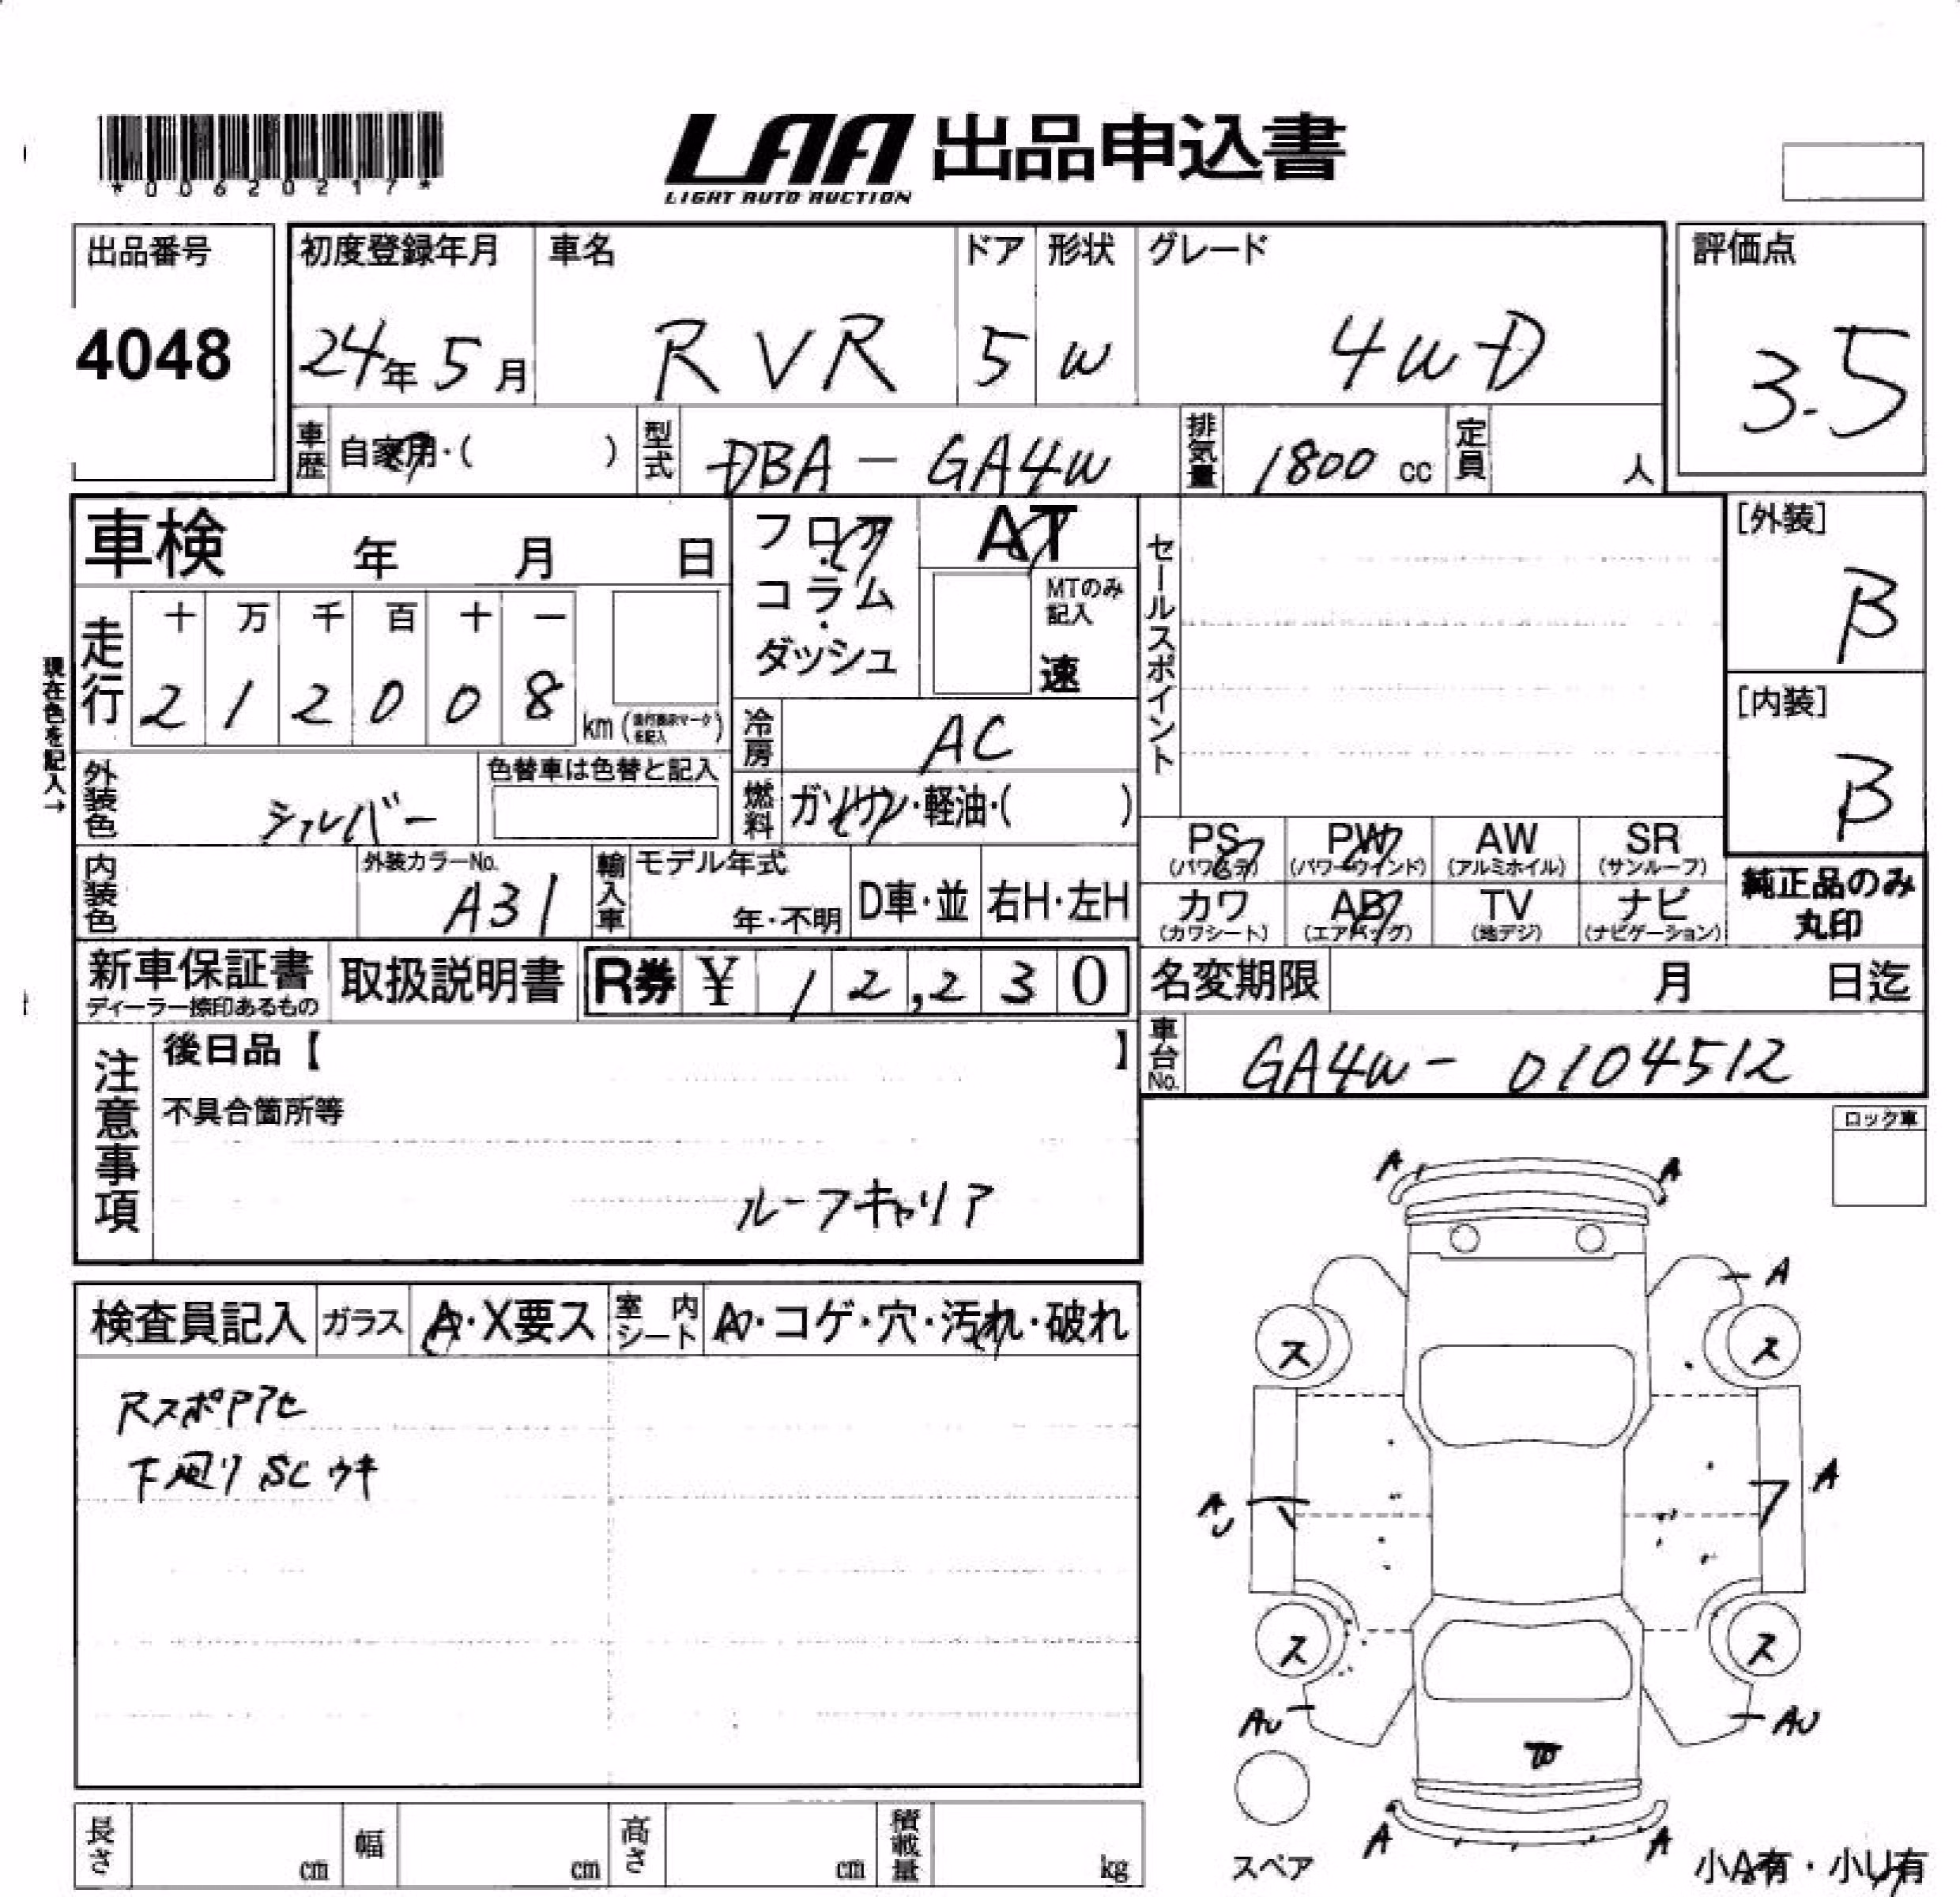 *00620217*
LAA 出品申込書
LIGHT AUTO AUCTION
出品番号
4048
初度登録年月
24年 5月
車名
RVR
ドア
5
形状
W
グレード
4WD
評価点
3.5
車歴
自家用・( )
型式
DBA - GA4W
排気量
1800 cc
定員
人
車検 年 月 日
フロア・コラム・ダッシュ
AT
MTのみ記入
速
セールスポイント
[外装]
B
[内装]
B
現在色を記入→
走行
十 万 千 百 十 一
2 1 2 0 0 8
km (走行表示マークを記入)
冷房
AC
外装色
シルバー
色替車は色替と記入
燃料
ガソリン・軽油・( )
内装色
外装カラーNo.
A31
輸入車
モデル年式
年・不明
D車・並
右H・左H
PS (パワステ)
PW (パワーウインド)
AW (アルミホイル)
SR (サンルーフ)
カワ (カワシート)
AB (エアバッグ)
TV (地デジ)
ナビ (ナビゲーション)
純正品のみ丸印
新車保証書
ディーラー捺印あるもの
取扱説明書
R券 ¥ 12,230
名変期限 月 日迄
車台No.
GA4W - 0104512
注意事項
後日品【 】
不具合箇所等
ルーフキャリア
ロック車
検査員記入
ガラス
A・X要ス
室内シート
A・コゲ・穴・汚れ・破れ
RスポPアセ
下廻りSCウキ
A A
A
ス ス
A
AU
ス ス
AU AU
A A
スペア
小A有・小U有
長さ cm
幅 cm
高さ cm
積載量 kg